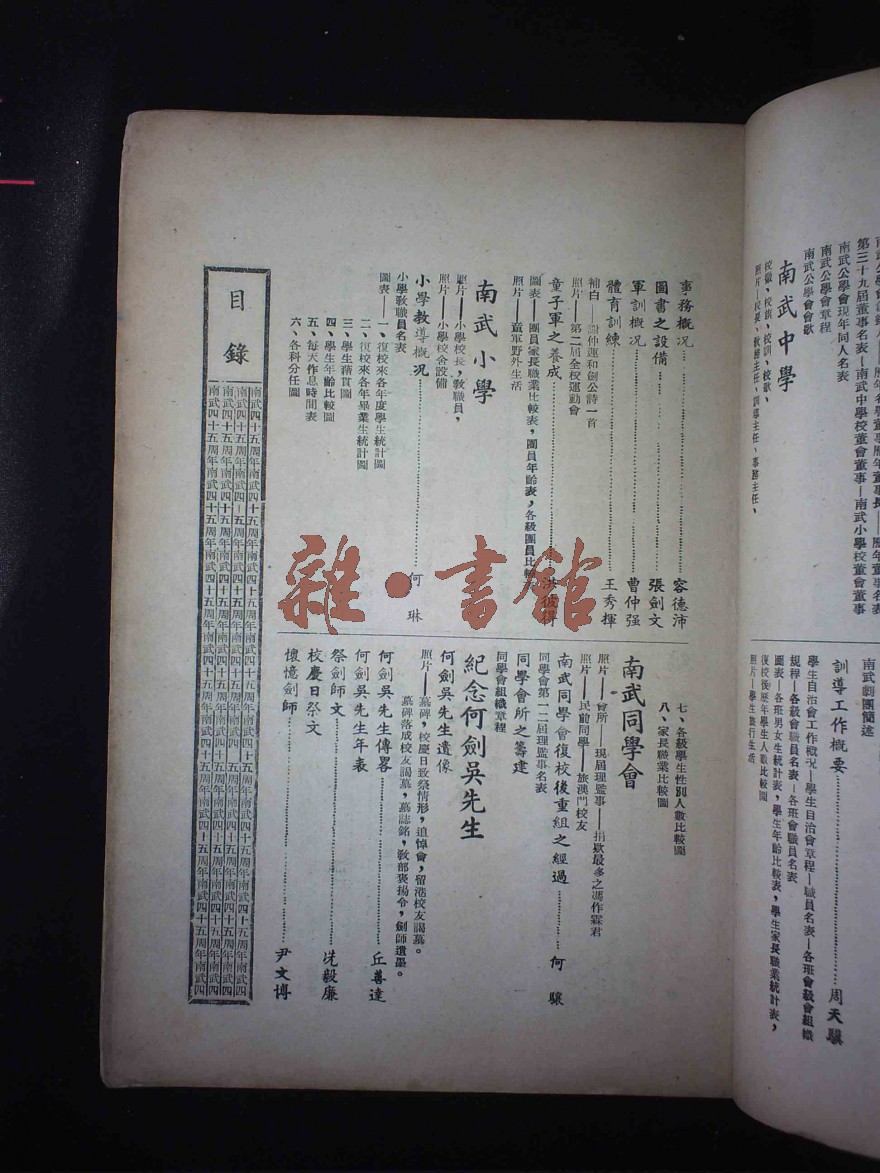 南武公學會會歌
南武公學會章程
南武公學會現年同人名表
第三十九屆董事名表—南武中學校董會董事—南武小學校董會董事
南武中學
校徽、校旗、校訓、校歌、
照片—校長、教務主任、訓導主任、事務主任、
南武劇團簡述
訓導工作概要………周天驥
學生自治會工作概況—學生自治會章程—職員名表—各班會級會組織
規程—各級會職員名表—各班會職員名表
圖表—各班男女生統計表，學生年齡比較表，學生家長職業統計表，
復校後歷年學生人數比較圖
照片—學生旅行生活
事務概況………容德沛
圖書之設備………張劍文
軍訓概況………曹仲强
體育訓練………王秀揮
補白——謝仲蓮和劍公詩一首
照片——第二屆全校運動會
童子軍之養成………洪彼得
圖表——團員家長職業比較表，團員年齡表，各級團員比較
照片——童軍野外生活
南武小學
照片——小學校長，敎職員，
照片——小學校舍設備
小學敎導概况………何琳
小學敎職員名表
圖表——一、復校來各年度學生統計圖
二、復校來各年畢業生統計圖
三、學生藉貫圖
四、學生年齡比較圖
五、每天作息時間表
六、各科分任圖
七、各級學生性別人數比較圖
八、家長職業比較圖
南武同學會
照片——會所——現屆理監事——捐欵最多之馮作霖君
照片——民前同學——旅澳門校友
南武同學會復校後重組之經過………何驤
同學會第一二屆理監事名表
同學會所之籌建
同學會組織章程
紀念何劍吳先生
何劍吳先生遺像
照片——墓碑，校慶日致祭情形，追悼會，留港校友謁墓。
墓碑落成校友謁墓，墓誌銘，敎部褒揚令，劍師遺墨。
何劍吳先生傳畧………丘善達
何劍吳先生年表
祭劍師文………冼毅廉
校慶日祭文
懷憶劍師………尹文博
目錄
南武四十五周年南武四十五周年南武四十五周年南武四十五周年南武四十五周年南武四十五周年南武四十五周年南武四
雜·書館